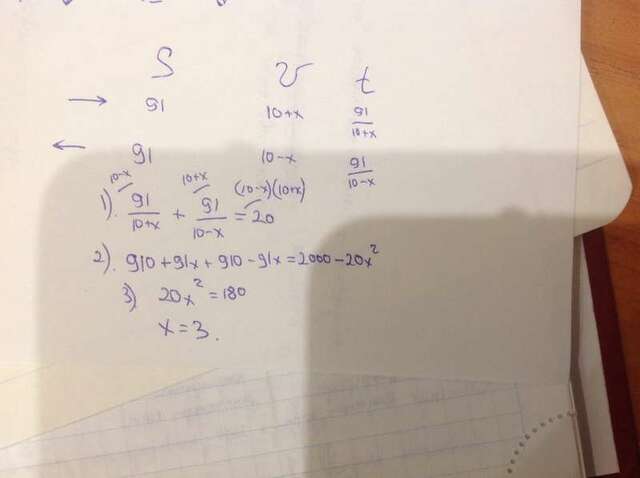 S v t
→ 91 10+x 91/10+x
← 91 10-x 91/10-x
10-x 10+x (10-x)(10+x)
1). 91/10+x + 91/10-x = 20
2). 910+91x+910-91x=2000-20x²
3) 20x²=180
x=3.